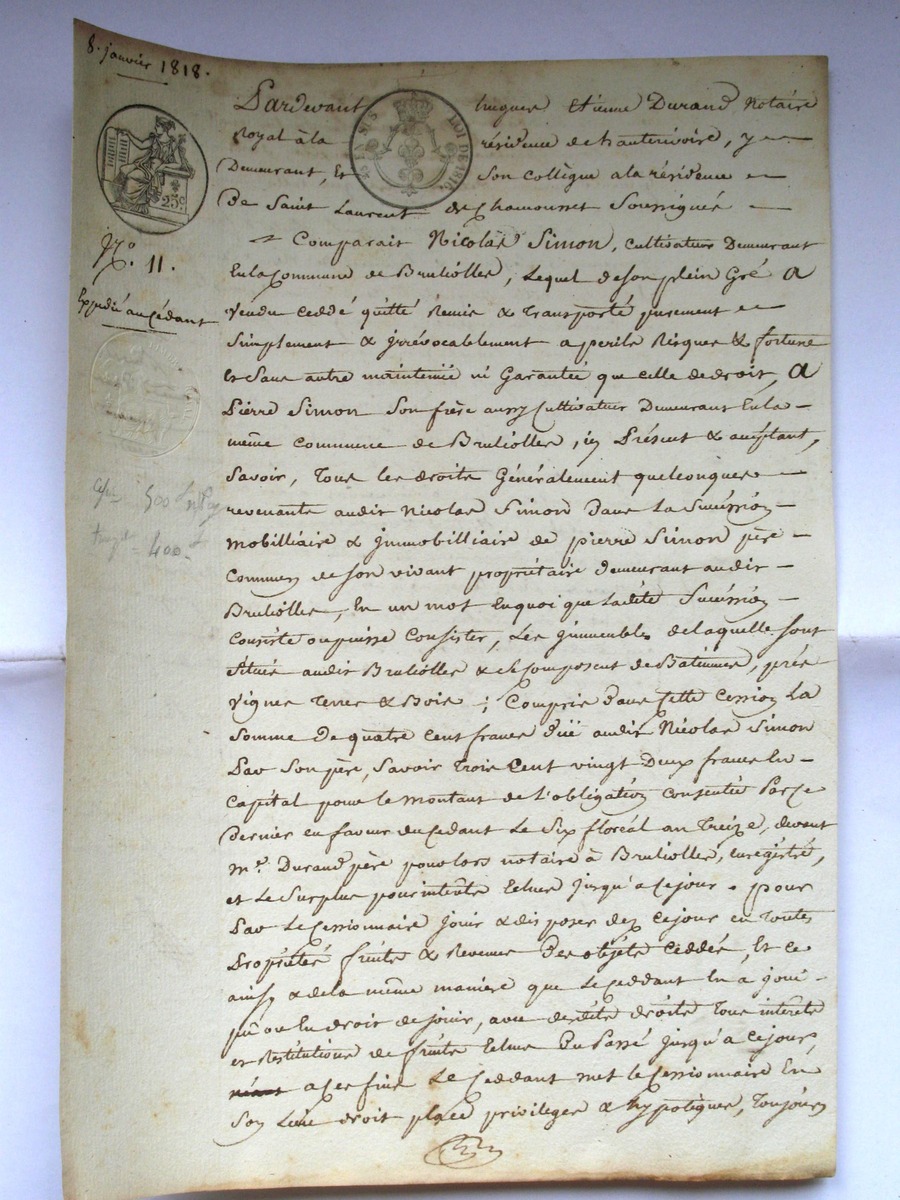 8. janvier 1818.
Pardevant hugues Etienne Durand Notaire
Royal à la résidence de hauterivoire, y
Demeurant, Et son collègue a la résidence
de Saint Laurent de Chamousset Soussignés
25c.
LOI DE 1816
No. 11.
Expédié au Cédant
Comparait Nicolas Simon, cultivateur Demeurant
En la Commune de Brulioller, Lequel de son plein Gré a
vendu ceddé quitté Remis & transporté purement et
simplement & jrrévocablement a perils Risques & fortune
et sans autre maintenüe ni Garantée que celle de droit, a
Pierre Simon son frère aussy Cultivateur Demeurant En la
même Commune de Brulioller, ici Présent & acceptant,
Savoir, Tous les droits Généralement quelconques
revenants audit Nicolas Simon Dans La Succéssion
mobilliaire & jmmobilliaire de pierre Simon père
Commun de son vivant propriétaire demeurant audit
Brulioller, En un mot En quoi que ladite Succéssion
Consiste ou puisse Consister, Les jmmeubles de laquelle sont
situés audit Brulioller & se Composent de Bâtiments, prés
vignes Terres & Bois ; Compris dans Cette Cession La
somme De quatre Cent francs düe audit Nicolas Simon
Par Son père, Savoir Trois Cent vingt Deux francs En
Capital pour le montant de L'obligation Consentie Par ce
Dernier en faveur du Cedant Le Six floréal an Treize, devant
me. Durand père pour lors notaire à Brulioller, Enregistré,
et Le Surplus pour intérêts Echus jusqu'a Ce jour. pour
Par Le Cessionnaire jouir & disposer dez Ce jour en Toutes
Propriétés fruits & Revenus Des objets Ceddés, Et ce
ainsy & de la même manière que Le Ceddant En a joui
pû ou Eu droit de jouir, avec desdits droits Tous intérêts
et Restitutions de fruits Echus Du Passé jusqu'a Ce jour,
a Ces fins Le Ceddant met Le Cessionnaire En
Son Lieu droit place privileges & hypotèques, Toujours
500
400